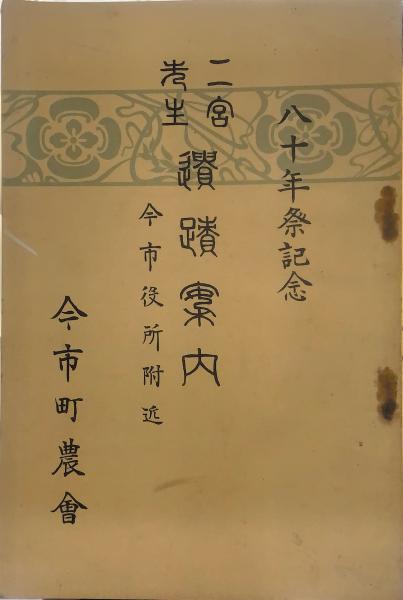 八十年祭記念
二宮先生遺蹟案内
今市役所附近
今市町農會